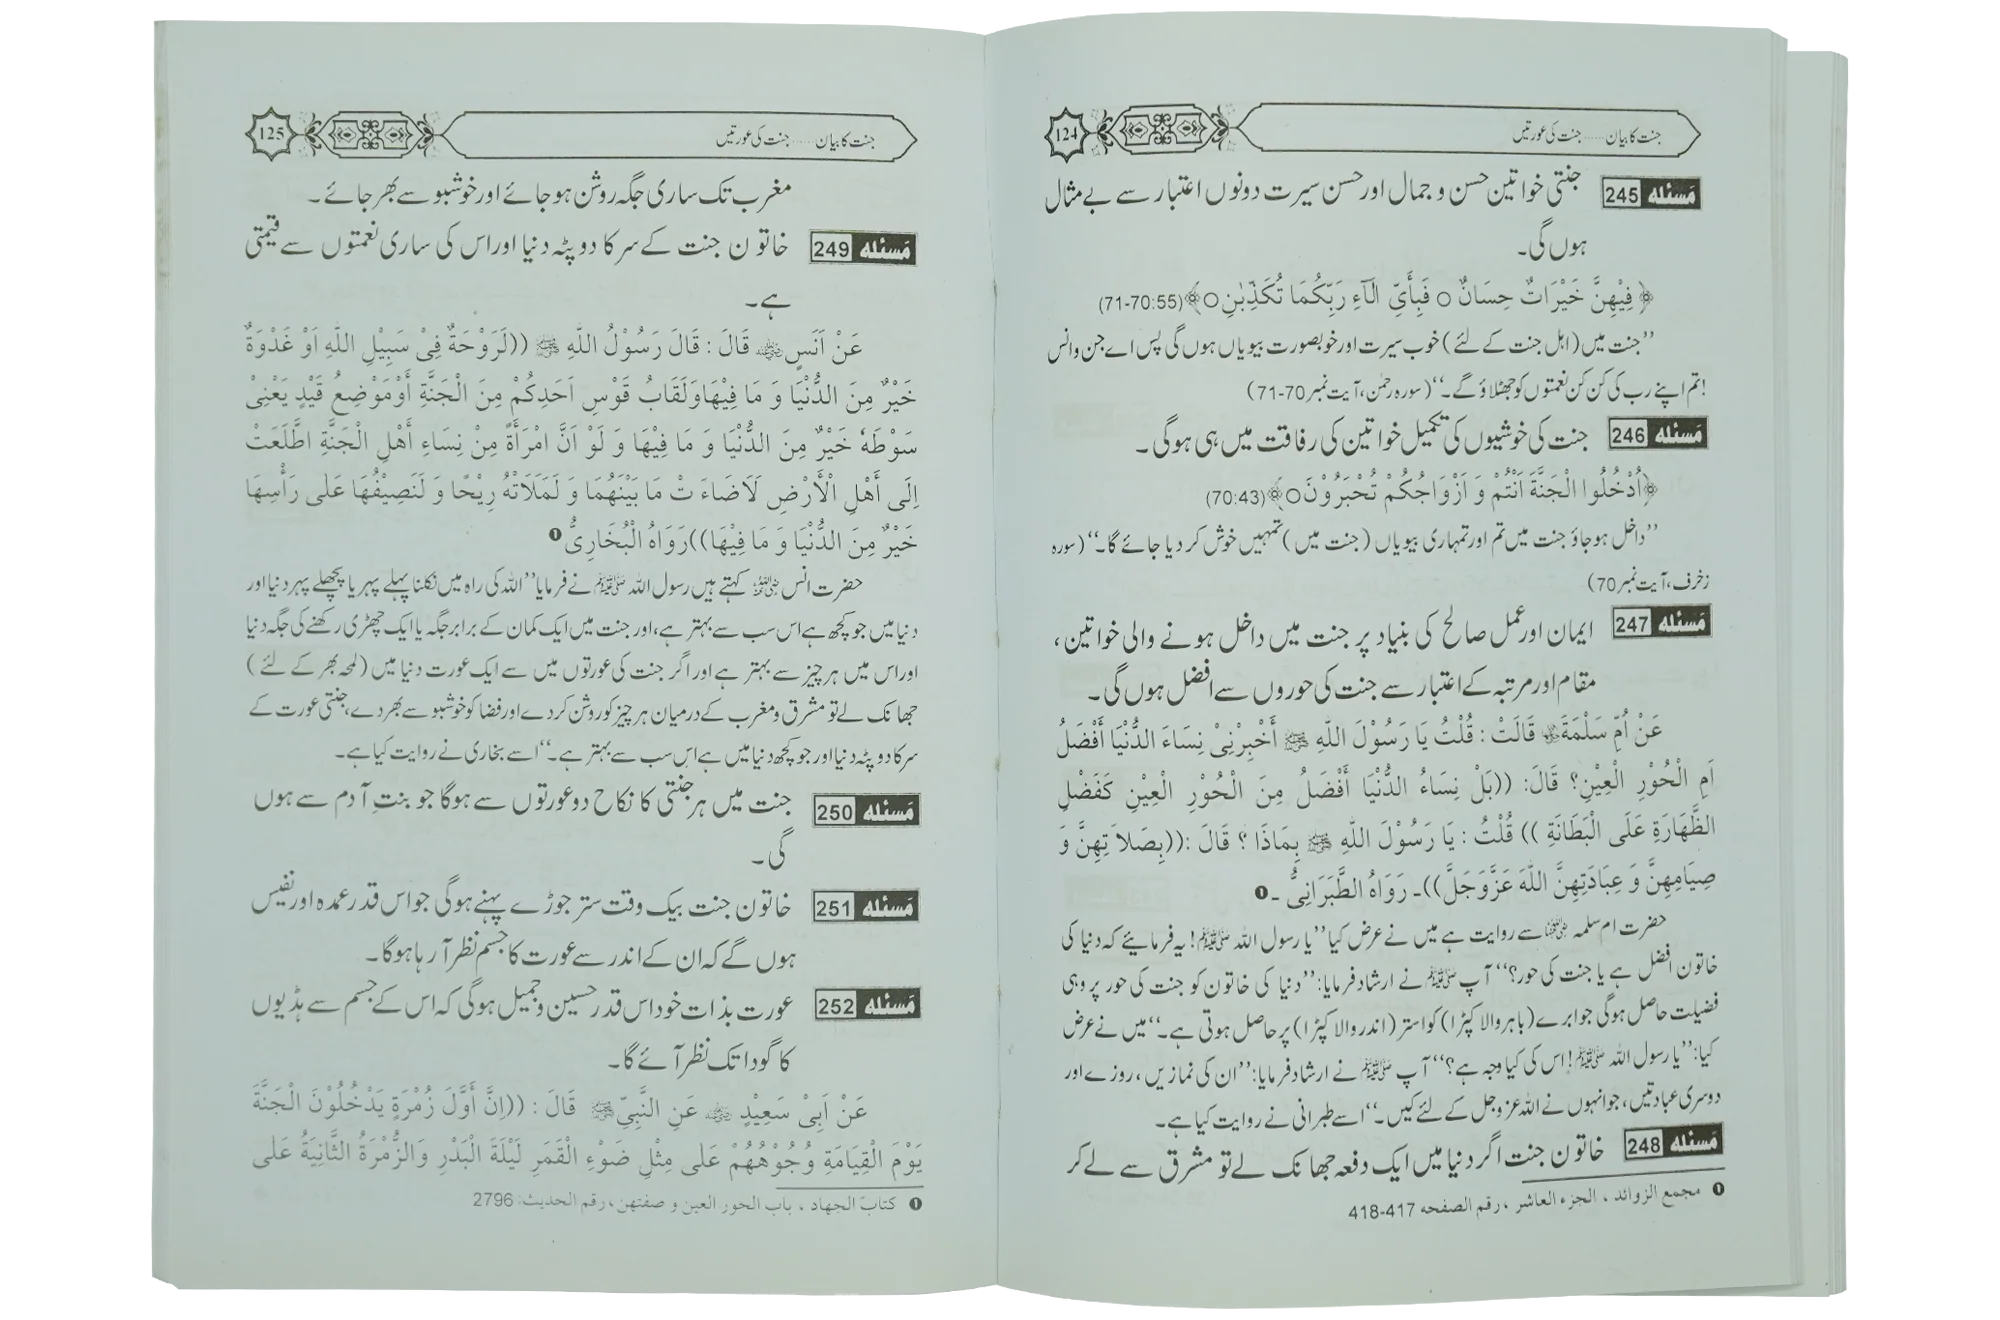 جنت کا بیان...... جنت کی عورتیں
124
مسئلہ 245 جنتی خواتین حسن و جمال اور حسن سیرت دونوں اعتبار سے بے مثال
ہوں گی۔
﴿ فِيْهِنَّ خَيْرَاتٌ حِسَانٌ ○ فَبِأَيِّ الَآءِ رَبِّكُمَا تُكَذِّبٰنِ○﴾(55:70-71)
’’جنت میں (اہل جنت کے لئے) خوب سیرت اور خوبصورت بیویاں ہوں گی پس اے جن وانس
!تم اپنے رب کی کن کن نعمتوں کو جھٹلاؤ گے۔‘‘ (سورہ رحمٰن، آیت نمبر 70-71)
مسئلہ 246 جنت کی خوشیوں کی تکمیل خواتین کی رفاقت میں ہی ہوگی۔
﴿اُدْخُلُوا الْجَنَّةَ اَنْتُمْ وَ اَزْوَاجُكُمْ تُحْبَرُوْنَ○﴾(70:43)
’’داخل ہو جاؤ جنت میں تم اور تمہاری بیویاں (جنت میں) تمہیں خوش کر دیا جائے گا۔‘‘ (سورہ
زخرف، آیت نمبر 70)
مسئلہ 247 ایمان اور عمل صالح کی بنیاد پر جنت میں داخل ہونے والی خواتین،
مقام اور مرتبہ کے اعتبار سے جنت کی حوروں سے افضل ہوں گی۔
عَنْ اُمِّ سَلْمَةَ ؓ قَالَتْ : قُلْتُ يَا رَسُوْلَ اللّٰهِ ﷺ أَخْبِرْنِىْ نِسَاءَ الدُّنْيَا أَفْضَلُ
اَمِ الْحُوْرِ الْعِيْنِ؟ قَالَ: ((بَلْ نِسَاءُ الدُّنْيَا أَفْضَلُ مِنَ الْحُوْرِ الْعِيْنِ كَفَضْلِ
الظَّهَارَةِ عَلَى الْبَطَانَةِ )) قُلْتُ : يَا رَسُوْلَ اللّٰهِ ﷺ بِمَاذَا ؟ قَالَ :((بِصَلاَ تِهِنَّ وَ
صِيَامِهِنَّ وَ عِبَادَتِهِنَّ اللّٰهَ عَزَّوَجَلَّ))۔ رَوَاهُ الطَّبَرَانِىُّ ۔❶
حضرت ام سلمہ ؓ سے روایت ہے میں نے عرض کیا ’’یا رسول اللہ ﷺ! یہ فرمائیے کہ دنیا کی
خاتون افضل ہے یا جنت کی حور؟‘‘ آپ ﷺ نے ارشاد فرمایا: ’’دنیا کی خاتون کو جنت کی حور پر وہی
فضیلت حاصل ہوگی جو ابرے (باہر والا کپڑا) کو استر (اندر والا کپڑا) پر حاصل ہوتی ہے۔‘‘ میں نے عرض
کیا: ’’یا رسول اللہ ﷺ! اس کی کیا وجہ ہے؟‘‘ آپ ﷺ نے ارشاد فرمایا: ’’ان کی نمازیں، روزے اور
دوسری عبادتیں، جو انہوں نے اللہ عزوجل کے لئے کیں۔‘‘ اسے طبرانی نے روایت کیا ہے۔
مسئلہ 248 خاتون جنت اگر دنیا میں ایک دفعہ جھانک لے تو مشرق سے لے کر
❶ مجمع الزوائد ، الجزء العاشر ، رقم الصفحه 417-418
جنت کا بیان...... جنت کی عورتیں
125
مغرب تک ساری جگہ روشن ہو جائے اور خوشبو سے بھر جائے۔
مسئلہ 249 خاتون جنت کے سر کا دوپٹہ دنیا اور اس کی ساری نعمتوں سے قیمتی
ہے۔
عَنْ اَنَسٍ ؓ قَالَ : قَالَ رَسُوْلُ اللّٰهِ ﷺ ((لَرَوْحَةٌ فِىْ سَبِيْلِ اللّٰهِ اَوْ غَدْوَةٌ
خَيْرٌ مِنَ الدُّنْيَا وَ مَا فِيْهَا وَلَقَابُ قَوْسِ اَحَدِكُمْ مِنَ الْجَنَّةِ أَوْمَوْضِعُ قَيْدٍ يَعْنِىْ
سَوْطَهٗ خَيْرٌ مِنَ الدُّنْيَا وَ مَا فِيْهَا وَ لَوْ اَنَّ امْرَأَةً مِنْ نِسَاءِ أَهْلِ الْجَنَّةِ اطَّلَعَتْ
اِلَى أَهْلِ الْأَرْضِ لَاَضَاءَ تْ مَا بَيْنَهُمَا وَ لَمَلَاَتْهُ رِيْحًا وَ لَنَصِيْفُهَا عَلٰى رَأْسِهَا
خَيْرٌ مِنَ الدُّنْيَا وَ مَا فِيْهَا))رَوَاهُ الْبُخَارِىُّ❶
حضرت انس ؓ کہتے ہیں رسول اللہ ﷺ نے فرمایا ’’اللہ کی راہ میں نکلنا پہلے پہر یا پچھلے پہر دنیا اور
دنیا میں جو کچھ ہے اس سب سے بہتر ہے، اور جنت میں ایک کمان کے برابر جگہ یا ایک چھڑی رکھنے کی جگہ دنیا
اور اس میں ہر چیز سے بہتر ہے اور اگر جنت کی عورتوں میں سے ایک عورت دنیا میں (لمحہ بھر کے لئے)
جھانک لے تو مشرق و مغرب کے درمیان ہر چیز کو روشن کر دے اور فضا کو خوشبو سے بھر دے، جنتی عورت کے
سر کا دوپٹہ دنیا اور جو کچھ دنیا میں ہے اس سب سے بہتر ہے۔‘‘ اسے بخاری نے روایت کیا ہے۔
مسئلہ 250 جنت میں ہر جنتی کا نکاح دو عورتوں سے ہوگا جو بنتِ آدم سے ہوں
گی۔
مسئلہ 251 خاتون جنت بیک وقت ستر جوڑے پہنے ہوگی جو اس قدر عمدہ اور نفیس
ہوں گے کہ ان کے اندر سے عورت کا جسم نظر آرہا ہوگا۔
مسئلہ 252 عورت بذات خود اس قدر حسین و جمیل ہوگی کہ اس کے جسم سے ہڈیوں
کا گودا تک نظر آئے گا۔
عَنْ اَبِىْ سَعِيْدٍ ؓ عَنِ النَّبِىِّ ﷺ قَالَ : ((اِنَّ أَوَّلَ زُمْرَةٍ يَدْخُلُوْنَ الْجَنَّةَ
يَوْمَ الْقِيَامَةِ وُجُوْهُهُمْ عَلٰى مِثْلِ ضَوْءِ الْقَمَرِ لَيْلَةَ الْبَدْرِ وَالزُّمْرَةُ الثَّانِيَةُ عَلٰى
❶ كتاب الجهاد ، باب الحور العين و صفتهن ، رقم الحديث: 2796